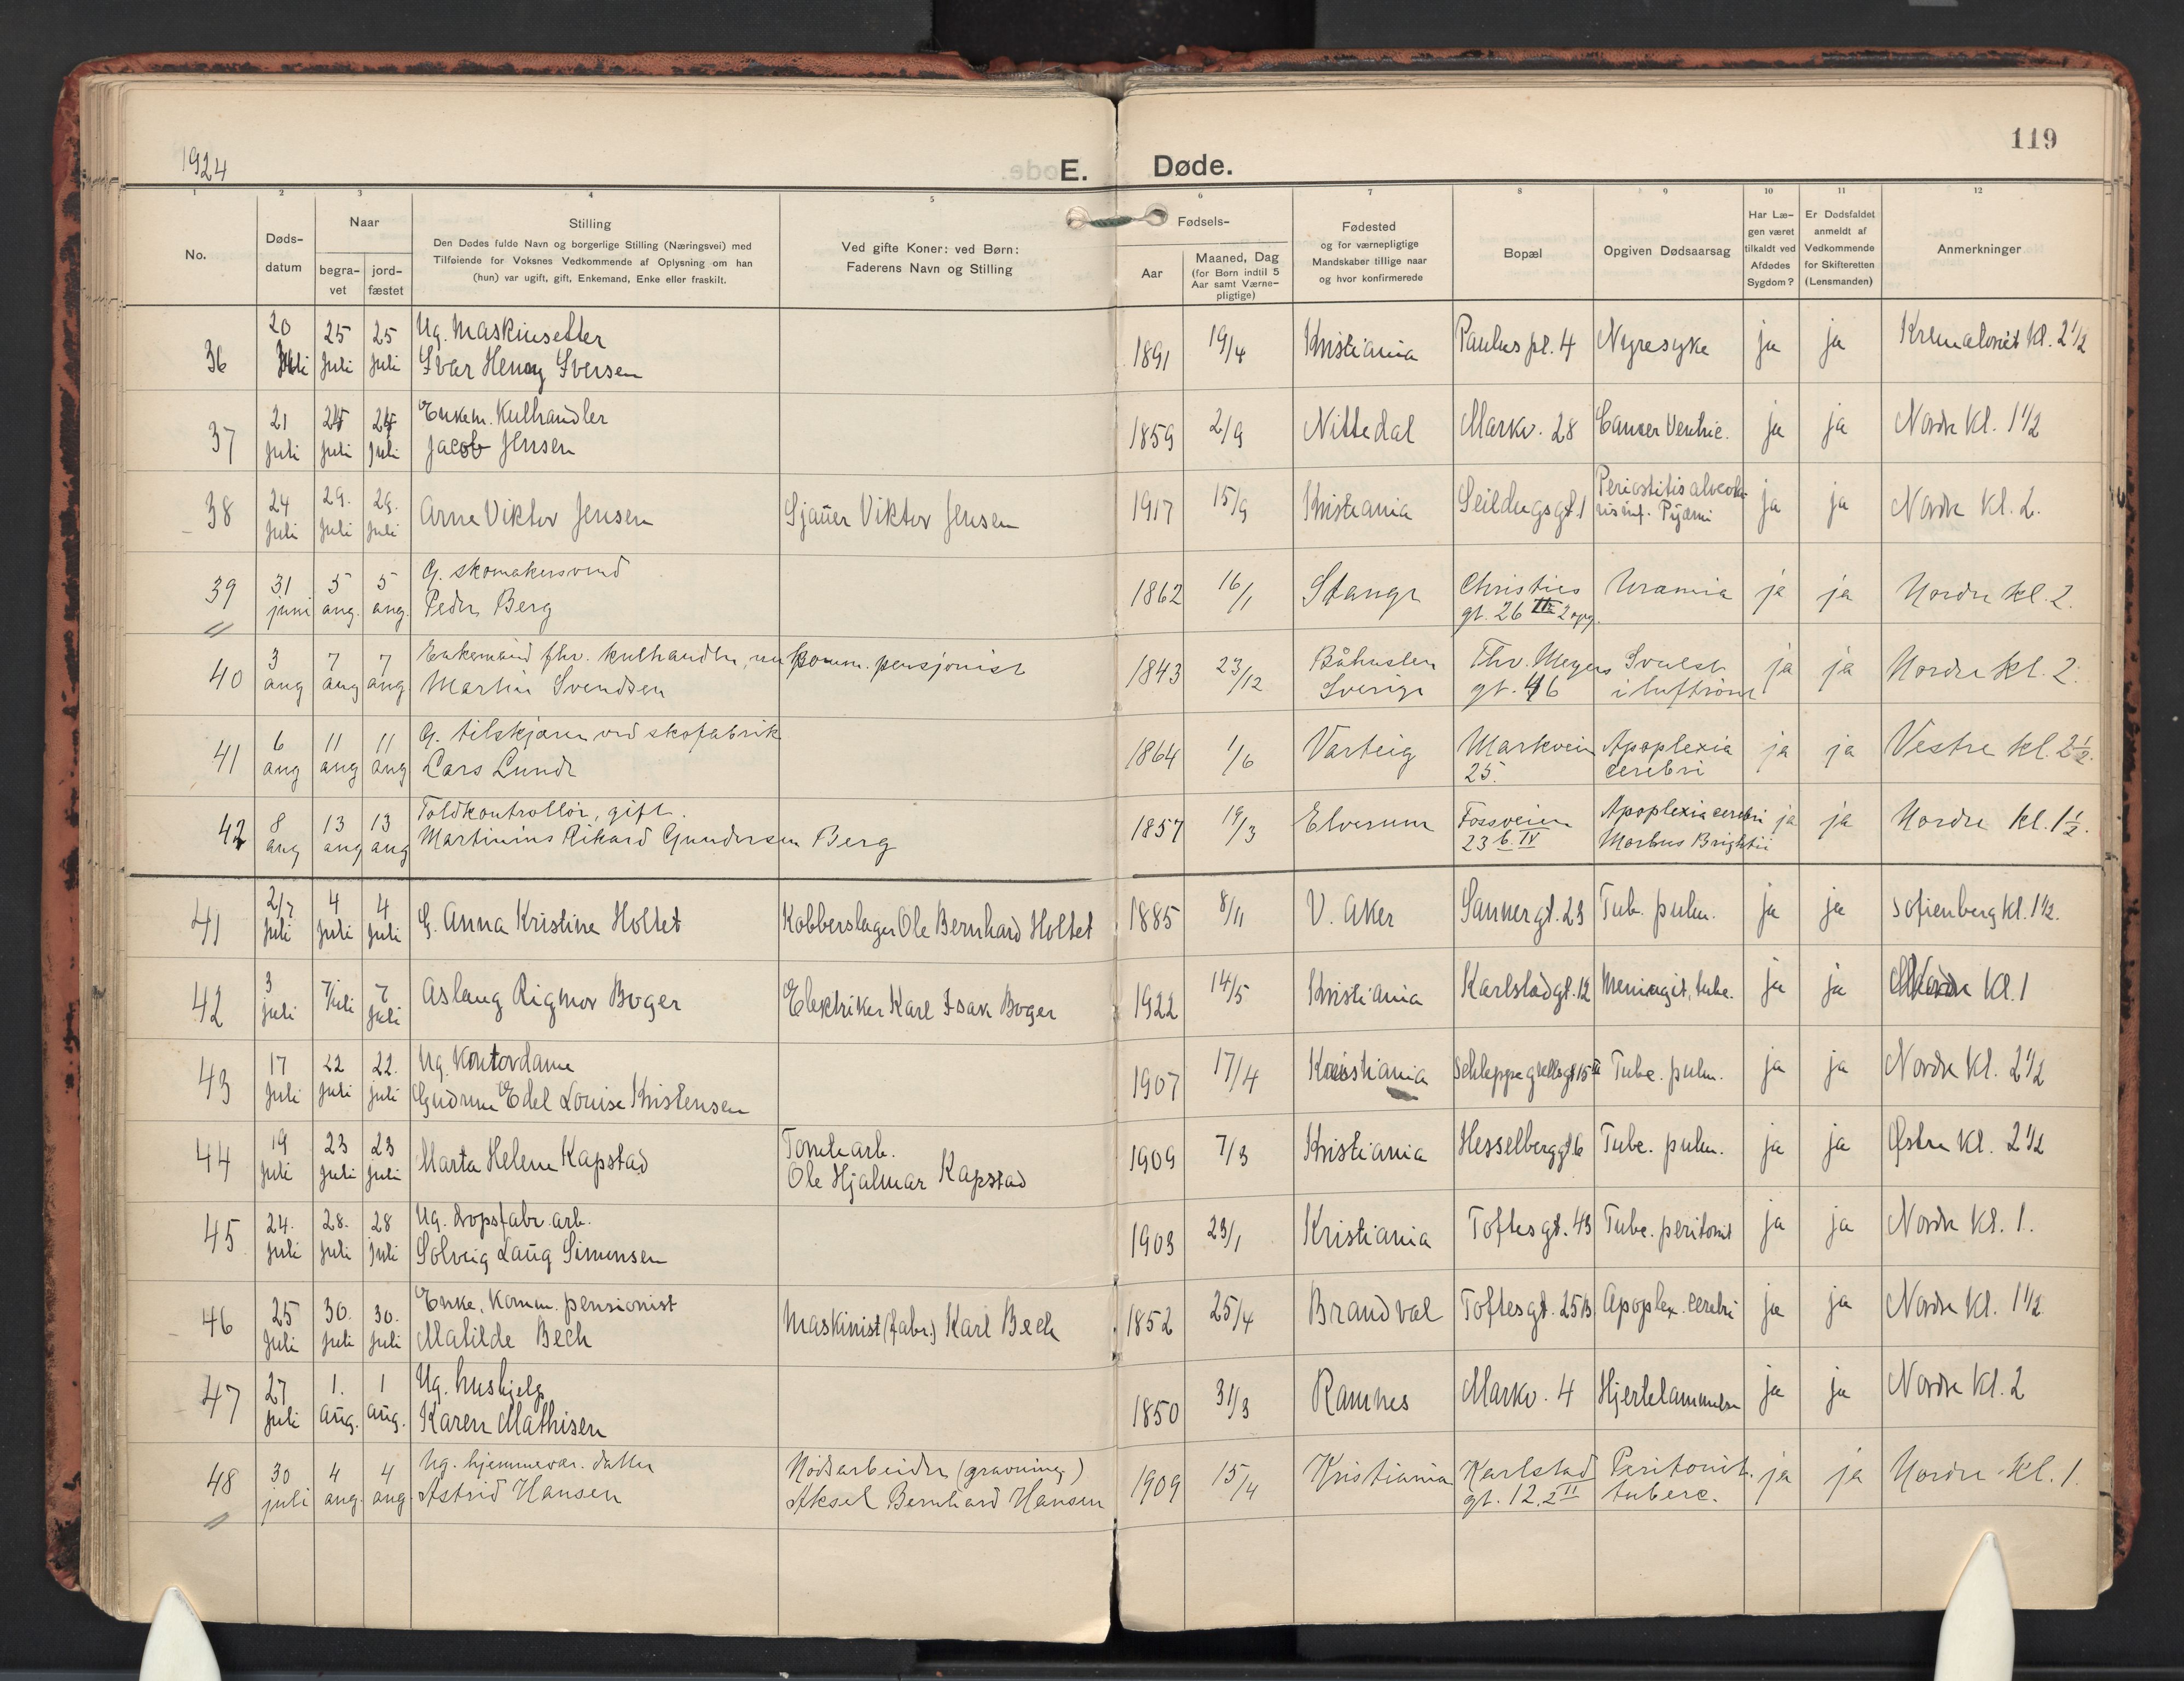 1924
E. Døde.
119
1 2 3 4 5 6 7 8 9 10 11 12
No.
Døds-
datum
Naar
begra-
vet
jord-
fæstet
Stilling
Den Dødes fulde Navn og borgerlige Stilling (Næringsvei) med
Tilføiende for Voksnes Vedkommende af Oplysning om han
(hun) var ugift, gift, Enkemand, Enke eller fraskilt.
Ved gifte Koner: ved Børn:
Faderens Navn og Stilling
Fødsels-
Aar
Maaned, Dag
(for Børn indtil 5
Aar samt Værne-
pligtige)
Fødested
og for værnepligtige
Mandskaber tillige naar
og hvor konfirmerede
Bopæl
Opgiven Dødsaarsag
Har Læ-
gen været
tilkaldt ved
Afdødes
Sygdom?
Er Dødsfaldet
anmeldt af
Vedkommende
for Skifteretten
(Lensmanden)
Anmerkninger
36 20 juli 25 juli 25 juli Ug. Maskinsetter
Ivar Henry Iversen 1891 19/4 Kristiania Paulus pl. 4 Nyresyke ja ja Krematoriet kl. 2 1/2
37 21 juli 24 juli 24 juli Enkem. Kulhandler
Jacob Jensen 1859 2/9 Nittedal Markv. 28 Cancer Ventric. ja ja Nordre kl. 1 1/2
38 24 juli 29. juli 29. juli Arne Viktor Jensen Sjauer Viktor Jensen 1917 15/9 Kristiania Seildugsgt. 1 Periostitis alveola-
ris inf. Pyæmi ja ja Nordre kl. 2.
39 31 juni 5 aug. 5 aug. G. skomakersvend
Peder Berg 1862 16/1 Stange Christies
gt. 26 III 2 opg. Uræmia ja ja Nordre kl. 2.
40 3 aug 7 aug 7 aug. Enkemand fhv. kulhandler, nu komm. pensjonist
Martin Svendsen 1843 23/12 Båhuslen
Sverige Thv. Meyers
gt. 46 Svulst
i luftrøret ja ja Nordre kl. 2.
41 6 aug 11 aug 11 aug G. tilskjærer ved skofabrik
Lars Lunde 1864 1/6 Varteig Markveien
25. Apoplexia
cerebri ja ja Vestre kl. 2 1/2.
42 8 aug 13 aug 13 aug Toldkontrollør, gift.
Martinius Rikard Gundersen Berg 1857 19/3 Elverum Fossveien
23 b. IV Apoplexia cerebri
Morbus Brightii ja ja Nordre kl. 1 1/2.
41 2/7 juli 4 juli 4 juli G. Anna Kristine Holtet Kobberslager Ole Bernhard Holtet 1885 8/11 V. Aker Sannergt. 23 Tub. pulm. ja ja Sofienberg kl. 1 1/2.
42 3 juli 7 juli 7 juli Aslaug Rigmor Boger Elektriker Karl Isak Boger 1922 14/5 Kristiania Karlstadgt. 12 Meningit. tube. ja ja Nordre kl. 1
43 17 juli 22 juli 22. juli Ug. Kontordame
Gudrun Edel Louise Kristensen 1907 17/4 Kristiania Schleppegrellsgt 15 II Tube. pulm. ja ja Nordre kl. 2 1/2
44 19 juli 23 juli 23 juli Marta Helene Kapstad Tomtearb.
Ole Hjalmar Kapstad 1909 7/3 Kristiania Hesselberggt 6 Tube. pulm. ja ja Østre kl. 2 1/2
45 24. juli 28. juli 28 juli Ug. dropsfabr. arb.
Solveig Laug Simonsen 1903 23/1 Kristiania Toftesgt. 43 Tube. peritonit ja ja Nordre kl. 1.
46 25 juli 30. juli 30. juli Enke, komm. pensionist
Matilde Bech Maskinist (fabr.) Karl Bech 1852 25/4 Brandval Toftesgt. 25 B Apoplex. cerebri ja ja Nordre kl. 1 1/2
47 27 juli 1. aug. 1 aug. Ug. hushjelp
Karen Mathisen 1850 31/3 Ramnes Markv. 4 Hjertelammelse ja ja Nordre kl. 2
48 30 juli 4 aug. 4 aug. Ug. hjemmevær. datter
Astrid Hansen Nødsarbeider (gravning)
Aksel Bernhard Hansen 1909 15/4 Kristiania Karlstad
gt. 12, 2 II Peritonit.
tuberc. ja ja Nordre kl. 1.